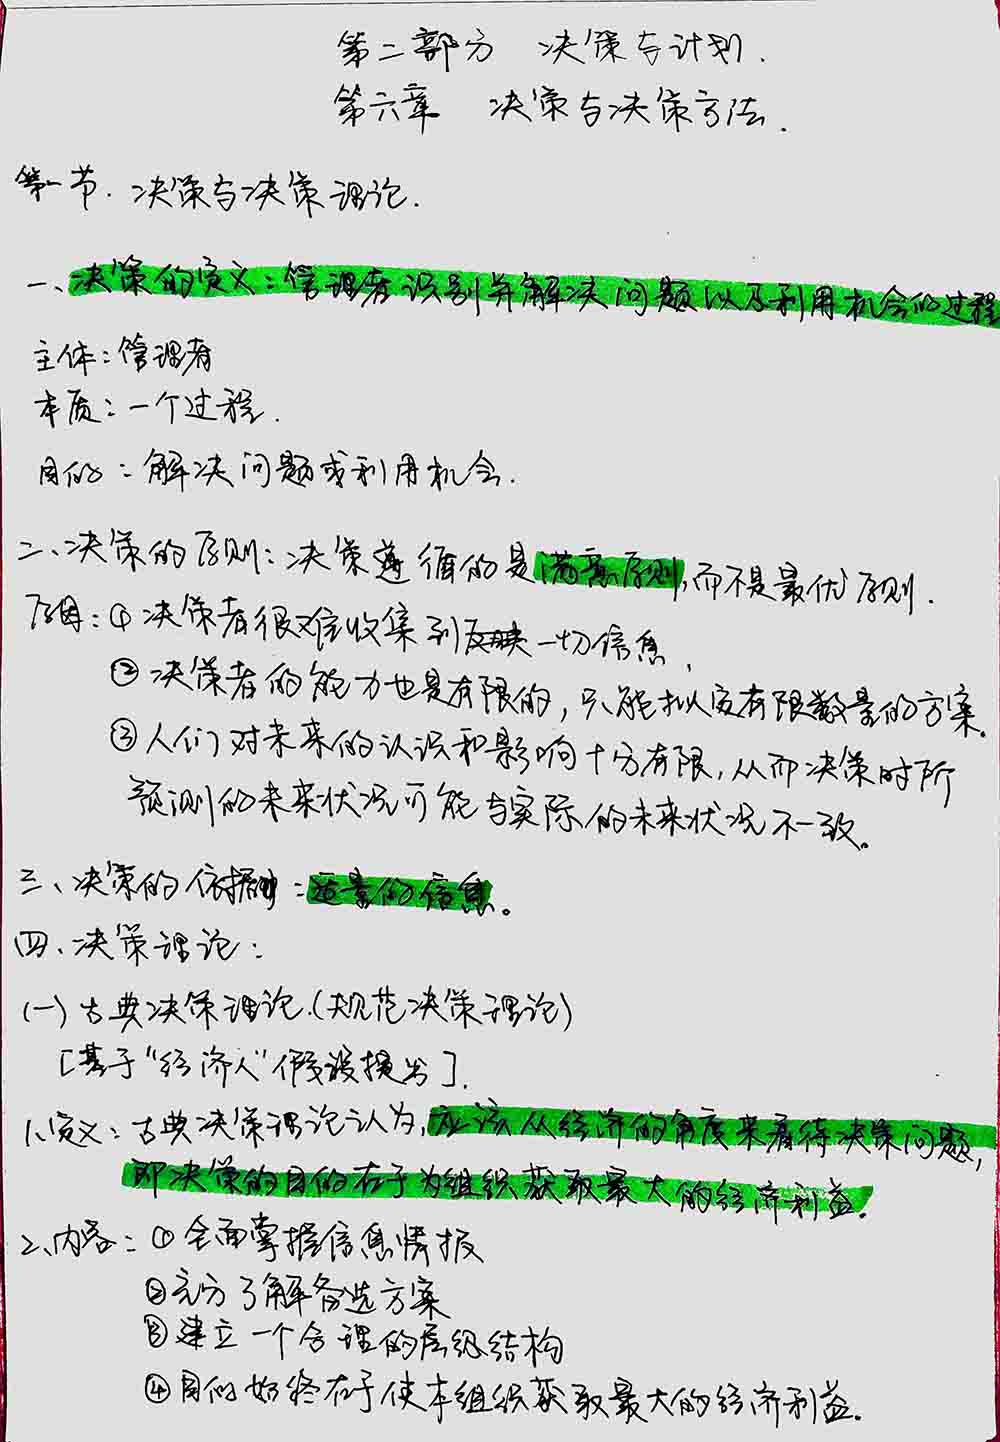 第二部分 决策与计划.
第六章 决策与决策方法.
第一节. 决策与决策理论.
一、决策的定义:管理者识别并解决问题以及利用机会的过程
主体:管理者
本质:一个过程.
目的:解决问题或利用机会.
二、决策的原则:决策遵循的是满意原则,而不是最优原则.
原因:①决策者很难收集到反映一切信息,
②决策者的能力也是有限的,只能拟定有限数量的方案.
③人们对未来的认识和影响十分有限,从而决策时所
预测的未来状况可能与实际的未来状况不一致。
三、决策的依据:适量的信息。
四、决策理论:
(一)古典决策理论.(规范决策理论)
[基于“经济人”假设提出].
1、定义:古典决策理论认为,应该从经济的角度来看待决策问题,
即决策的目的在于为组织获取最大的经济利益.
2、内容:①全面掌握信息情报
②充分了解备选方案
③建立一个合理的层级结构
④目的始终在于使本组织获取最大的经济利益.